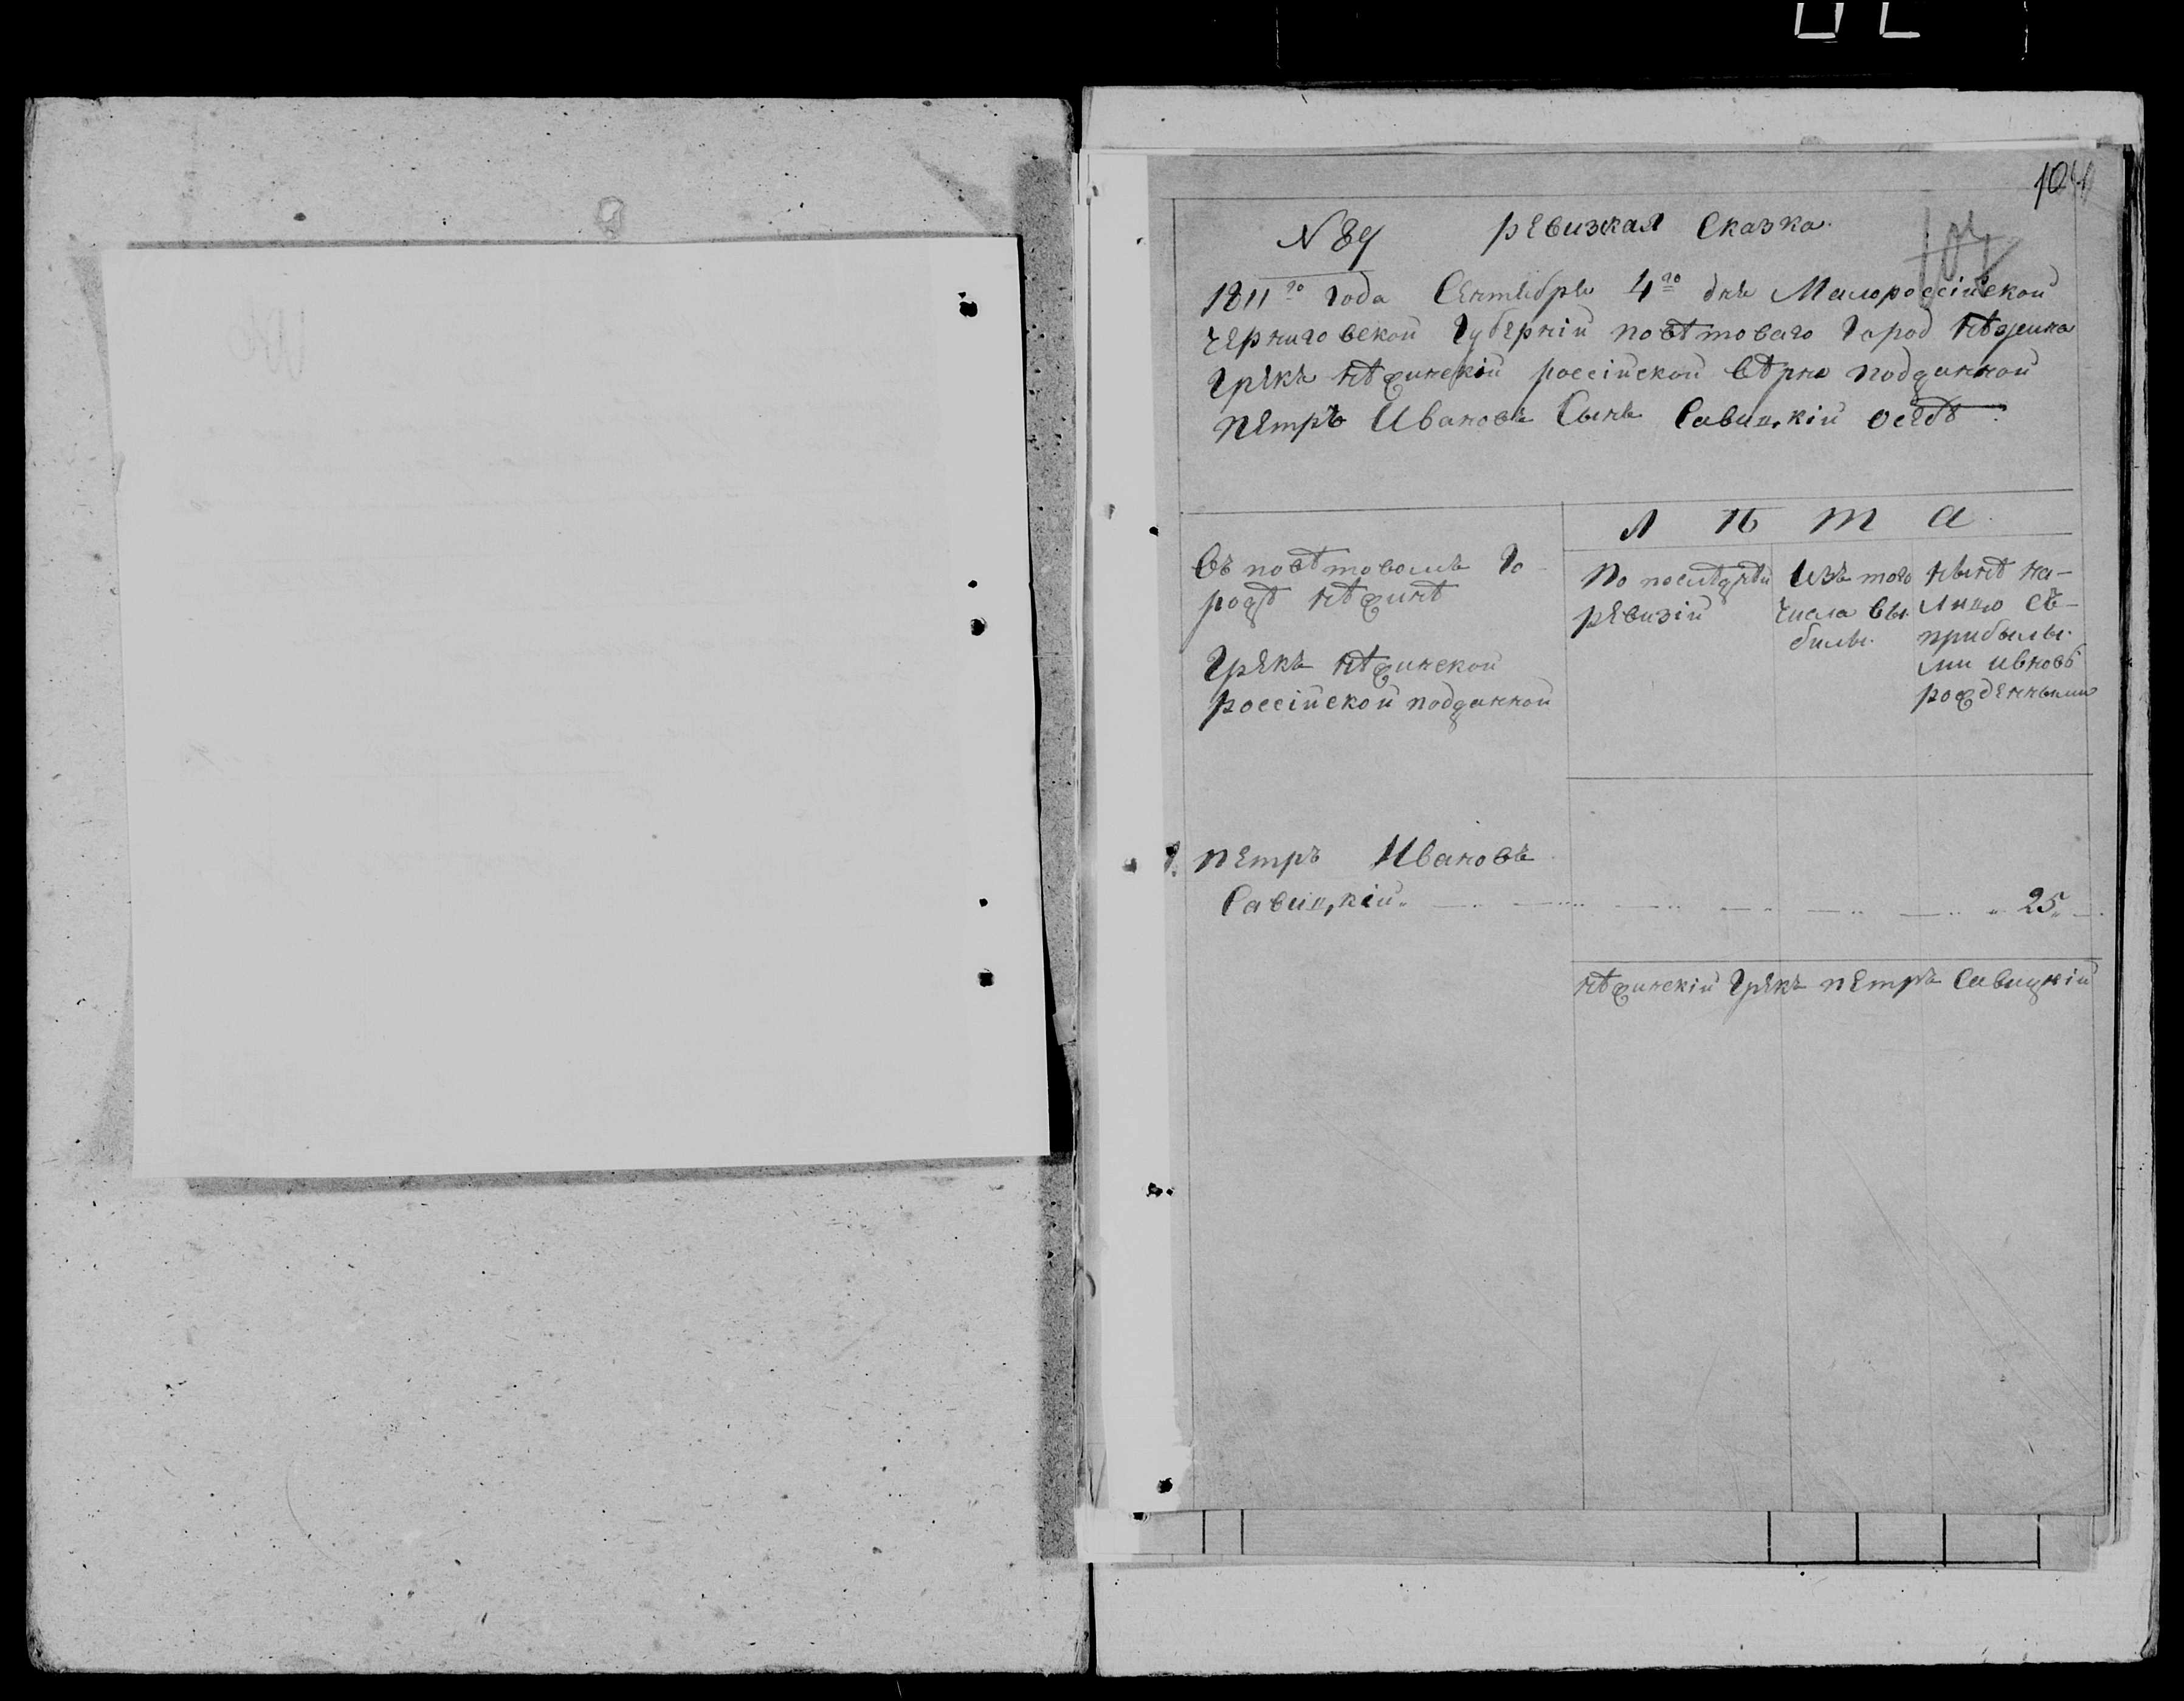 № 89 ревизкая Сказка.
1811го года Сентебрь 4го днь Малороссійской
черниговской Губерніи поветоваго Город Нѣжина
Грекъ нѣжинскій россійской вѣрно подданной
петръ Ивановъ Сынъ Савицкій
л ѣ т а
Въ повѣтовомъ Го-
родѣ нѣжинѣ
Грекъ нѣжинской
россійской подданной
По последней
ревизіи
Изъ того
числа вы
были.
Нынѣ на-
лицо съ-
прибылы-
ми ивновь
рожденными
1. петръ Ивановъ
Савицкій 25
нѣжинскій Грекъ петръ Савицкій